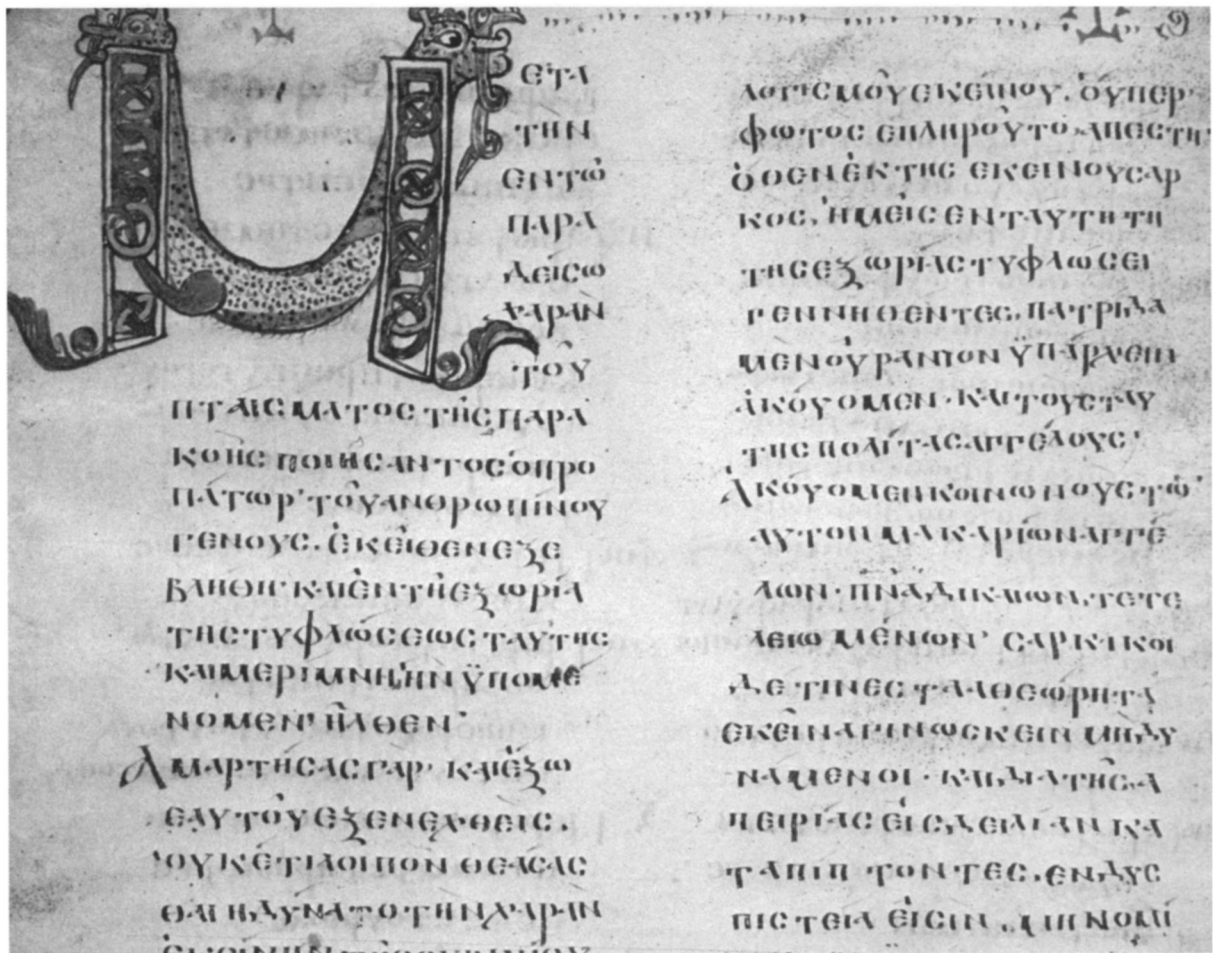 ΜΕΤΑ
ΤΗΝ
ΕΝΤΩ
ΠΑΡΑ
ΔΕΙCΩ
ΧΑΡΑΝ
ΤΟΥ
ΠΤΑΙCΜΑΤΟC ΤΗC ΠΑΡΑ
ΚΟΗC ΠΟΙΗCΑΝΤΟC Ο ΠΡΟ
ΠΑΤΩΡ ΤΟΥ ΑΝΘΡΩΠΙΝΟΥ
ΓΕΝΟΥC · ΕΚΕΙΘΕΝ ΕΞΕ
ΒΛΗΘΗ · ΚΑΙ ΕΝ ΤΗ ΕΞΩΡΙΑ
ΤΗC ΤΥΦΛΩCΕΩC ΤΑΥΤΗC
ΚΑΙ ΜΕΡΙΜΝΗ ΗΝ ΫΠΟΜΕ
ΝΟΜΕΝ ΗΛΘΕΝ ·
ΑΜΑΡΤΗCΑC ΓΑΡ · ΚΑΙ ΕΞΩ
ΕΑΥΤΟΥ ΕΞΕΝΕΧΘΕΙC ·
ΟΥΚΕΤΙ ΛΟΙΠΟΝ ΘΕΑCΑC
ΘΑΙ ΗΔΥΝΑΤΟ ΤΗΝ ΧΑΡΑΝ
ΛΟΓΙCΜΟΥ ΕΚΕΙΝΟΥ · ΟΥΠΕΡ
ΦΩΤΟC ΕΠΛΗΡΟΥΤΟ ΑΠΕCΤΗ
ΟΘΕΝ ΕΚ ΤΗC ΕΚΕΙΝΟΥ CΑΡ
ΚΟC · ΗΜΕΙC ΕΝ ΤΑΥΤΗ ΤΗ
ΤΗC ΕΞΩΡΙΑC ΤΥΦΛΩCΕΙ
ΓΕΝΝΗΘΕΝΤΕC · ΠΑΤΡΙΔΑ
ΜΕΝ ΟΥΡΑΝΙΟΝ ΫΠΑΡΧΕΙΝ
ΑΚΟΥΟΜΕΝ · ΚΑΙ ΤΟΥC ΤΑΥ
ΤΗC ΠΟΛΙΤΑC ΑΓΓΕΛΟΥC ·
ΑΚΟΥΟΜΕΝ ΚΟΙΝΩΝΟΥC ΤΩ
ΑΥΤΩΝ ΜΑΚΑΡΙΩΝ ΑΓΓΕ
ΛΩΝ · ΠΝΑ ΔΙΚΑΙΩΝ · ΤΕΤΕ
ΛΕΙΩΜΕΝΩΝ · CΑΡΚΙΚΟΙ
ΔΕ ΤΙΝΕC ΤΑ ΑΘΕΩΡΗΤΑ
ΕΚΕΙΝΑ ΓΙΝΩCΚΕΙΝ ΜΗ ΔΥ
ΝΑΜΕΝΟΙ · ΚΑΙ ΔΙΑ ΤΗC Α
ΠΕΙΡΙΑC ΕΙC ΔΕΙΛΙΑΝ ΚΑ
ΤΑΠΙΠΤΟΝΤΕC · ΕΝ ΔΥC
ΠΙCΤΕΙΑ ΕΙCΙΝ ΜΗ ΝΟΜΙ